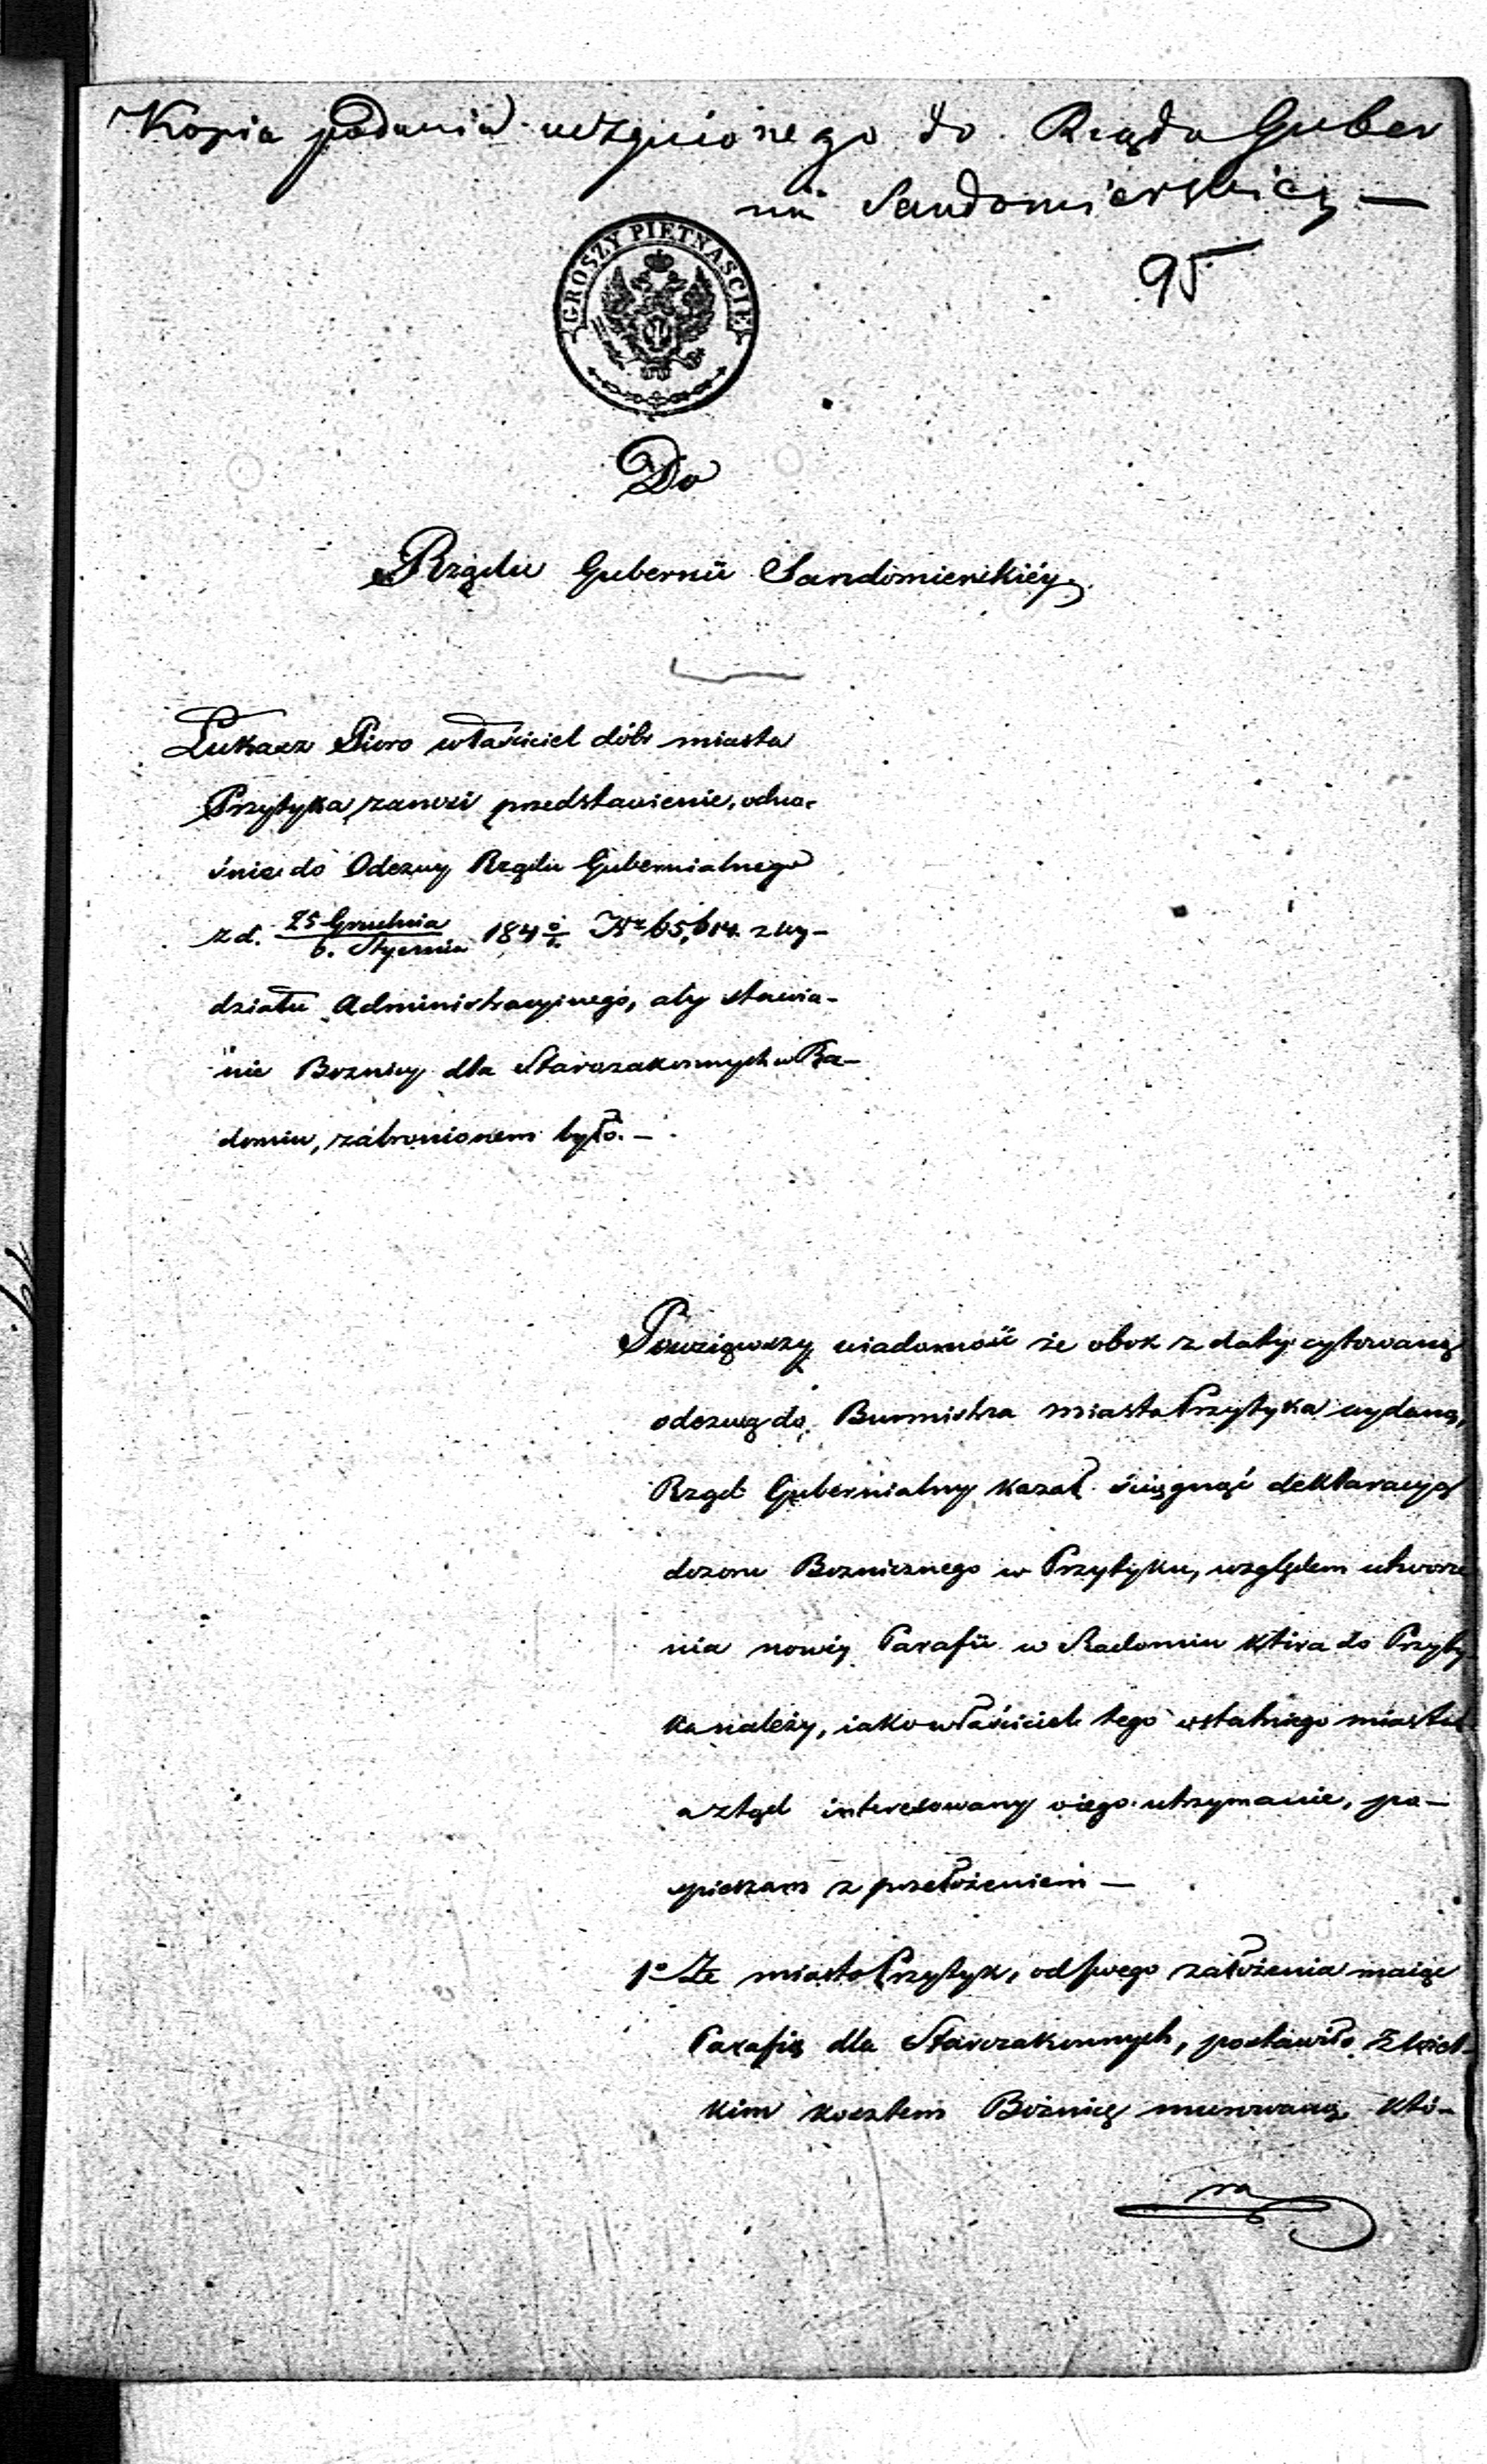 Kopia podania uczynionego do Rządu Guber
nii Sandomierskiej —
95
GROSZY PIETNAŚCIE
Do
Rządu Gubernii Sandomierskiéy
Łukasz Pióro właściciel dóbr miasta
Przytyka, zanosi przedstawienie, odno-
śnie do Odezwy Rządu Gubernialnego
z d. 25 Grudnia / 6. Stycznia 184 0/1 Nr 65,614. z wy-
działu Administracyjnego, aby stawia-
nie Boznicy dla Starozakonnych w Ra-
domiu, zabronionem było. —
Powziąwszy wiadomość że obok z daty cytowaną
odezwą do Burmistrza miasta Przytyka wydaną,
Rząd Gubernialny kazał ściągnąć deklaracyą
dozoru Bozniczego w Przytyku, względem utworze
nia nowéy Parafii w Radomiu która do Przyty
ka należy, iako właściciel tego ostatniego miasta
a ztąd interesowany o iego utrzymanie, po-
spieszam z przełożeniem —
1o Że miasto Przytyk, od swego założenia maiąc
Parafią dla Starozakonnych, postawiło z wiel-
kim kosztem Bóżnicę murowaną, któ-
ra